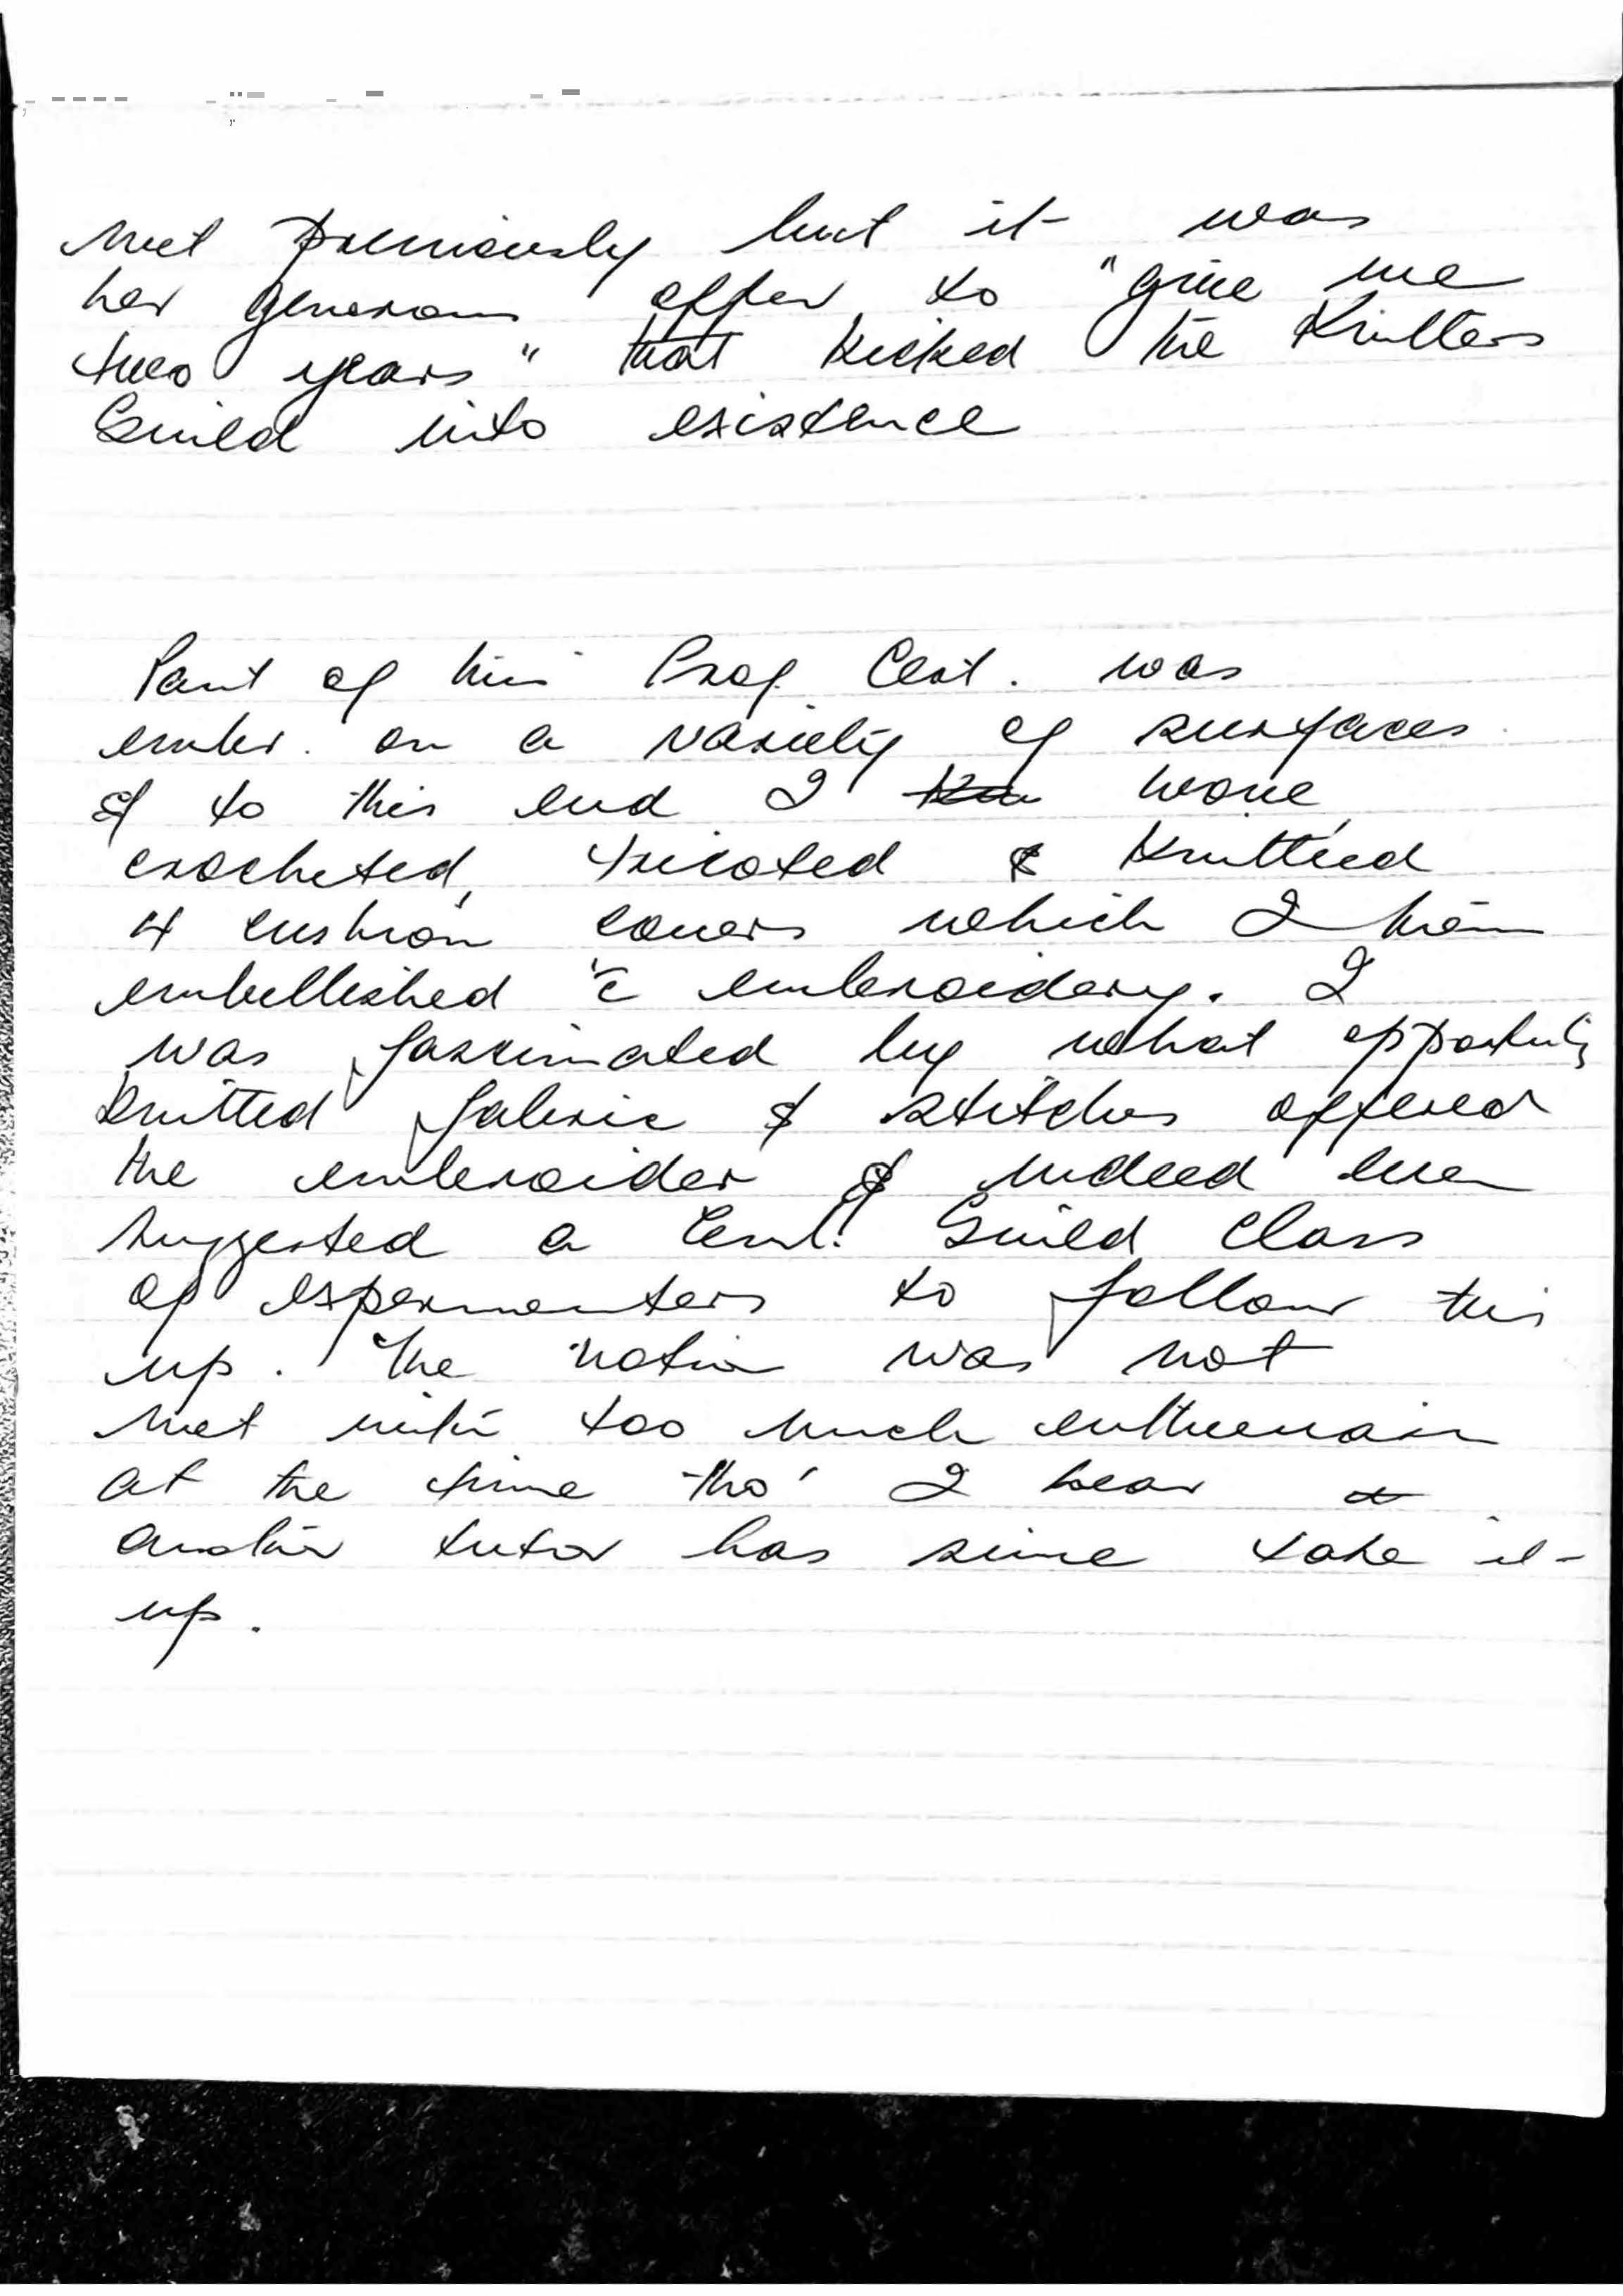 met previously but it was
her generous offer to "give me
two years" that kicked the Knitters
Guild into existence
Part of this Prof. Cert. was
embr. on a variety of surfaces
& to this end I wove,
crocheted, tricoted & knitted
4 cushion covers which I then
embellished c̄ embroidery. I
was fascinated by what opportunity
knitted fabric & stitches offered
the embroider & indeed even
suggested a Emb. Guild class
of experimenters to follow this
up. The notion was not
met with too much enthusiasm
at the time tho' I hear
another tutor has since take it
up.